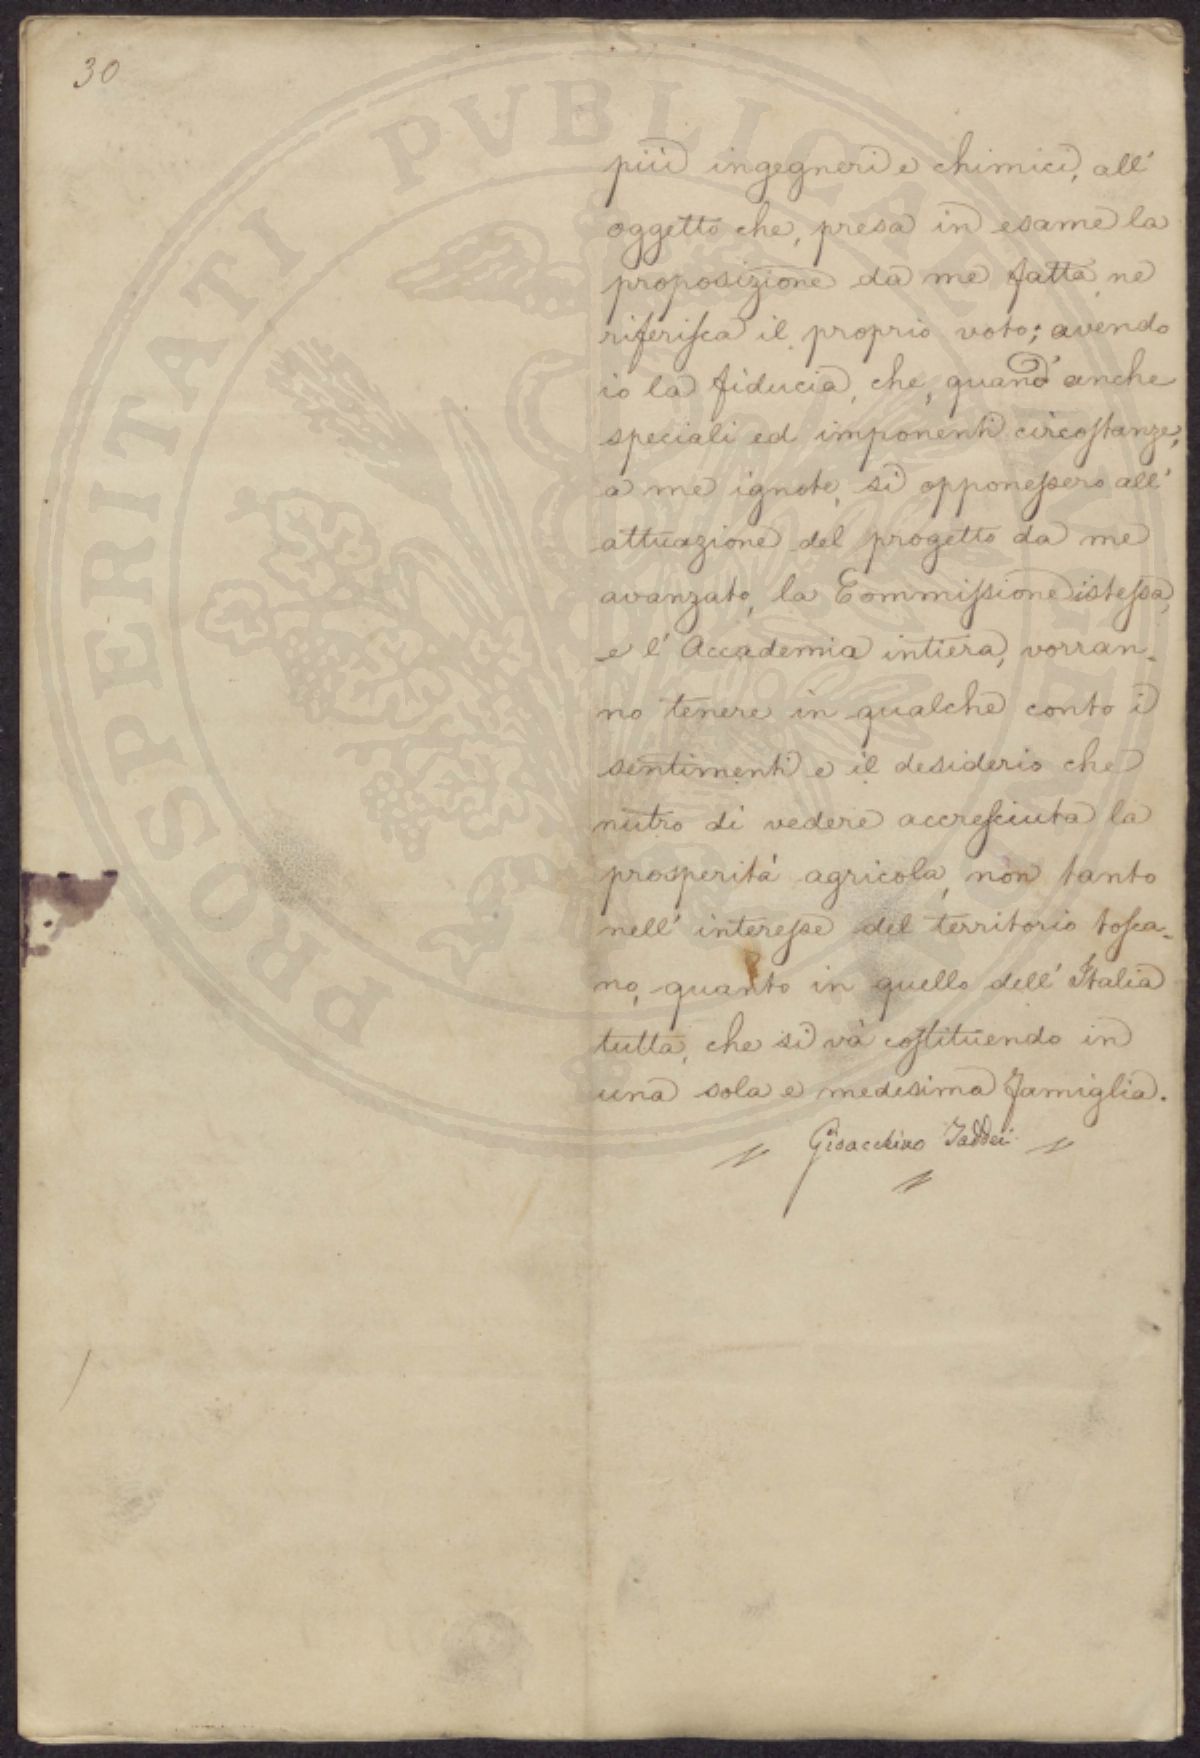 30
PROSPERITATI PVBLICAE
più ingegneri e chimici, all'
oggetto che, presa in esame la
proposizione da me fatta, ne
riferisca il proprio voto; avendo
io la fiducia, che, quand' anche
speciali ed imponenti circostanze,
a me ignote, si opponessero all'
attuazione del progetto da me
avanzato, la Commissione istessa,
e l' Accademia intiera, vorran-
no tenere in qualche conto i
sentimenti e il desiderio che
nutro di vedere accresciuta la
prosperità agricola, non tanto
nell' interesse del territorio tosca-
no, quanto in quello dell' Italia
tutta, che si và costituendo in
una sola e medesima famiglia.
Gioacchino Taddei